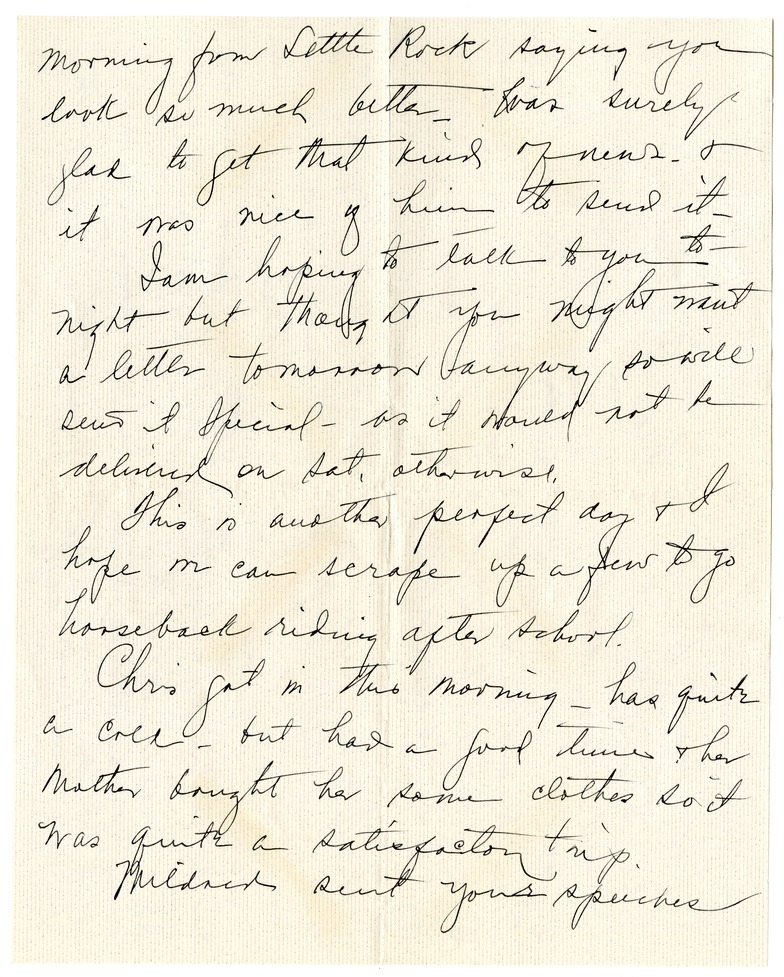 morning from Little Rock saying you
look so much better - Was surely
glad to get that kind of news - &
it was nice of him to send it -
I am hoping to talk to you to-
night but thought you might want
a letter tomorrow anyway so will
send it Special - as it would not be
delivered on Sat. otherwise.
This is another perfect day & I
hope we can scrape up a few to go
horseback riding after school.
Chris got in this morning - has quite
a cold - but had a good time & her
Mother bought her some clothes so it
was quite a satisfactory trip.
Mildred sent your speeches